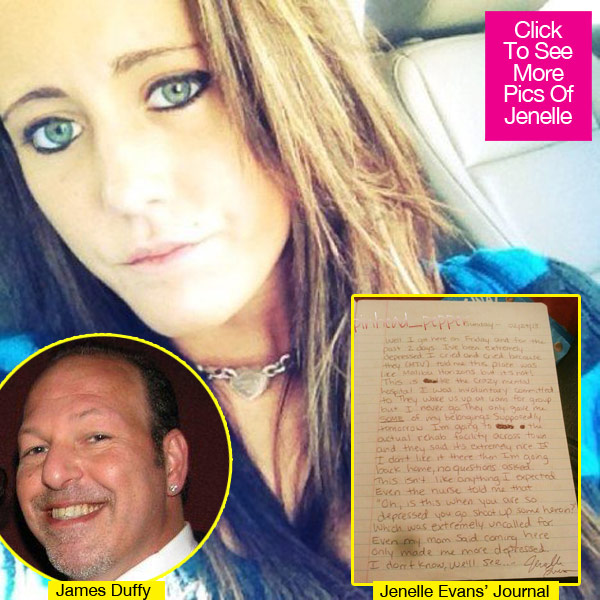 Click
To See
More
Pics Of
Jenelle
Sunday -
well I got here on Friday and for the
past 2 days I've been extremely
depressed. I cried and cried because
they told me this place was
like Malibu Horizons but it's not!
This is like the crazy mental
hospital I was involuntary committed
to. They woke us up at for group
but I never go. They only gave me
SOME of my belongings. Supposedly
tomorrow I'm going to the
actual rehab facility across town
and they said it's extremely nice. If
I don't like it there then I'm going
back home, no questions asked.
This isn't like anything I expected.
Even the nurse told me that
"Oh, is this when you are so
depressed you go shoot up some heroin?"
Which was extremely uncalled for.
Even my mom said coming here
only made me more depressed.
I don't know, we'll see... Jenelle
James Duffy
Jenelle Evans' Journal